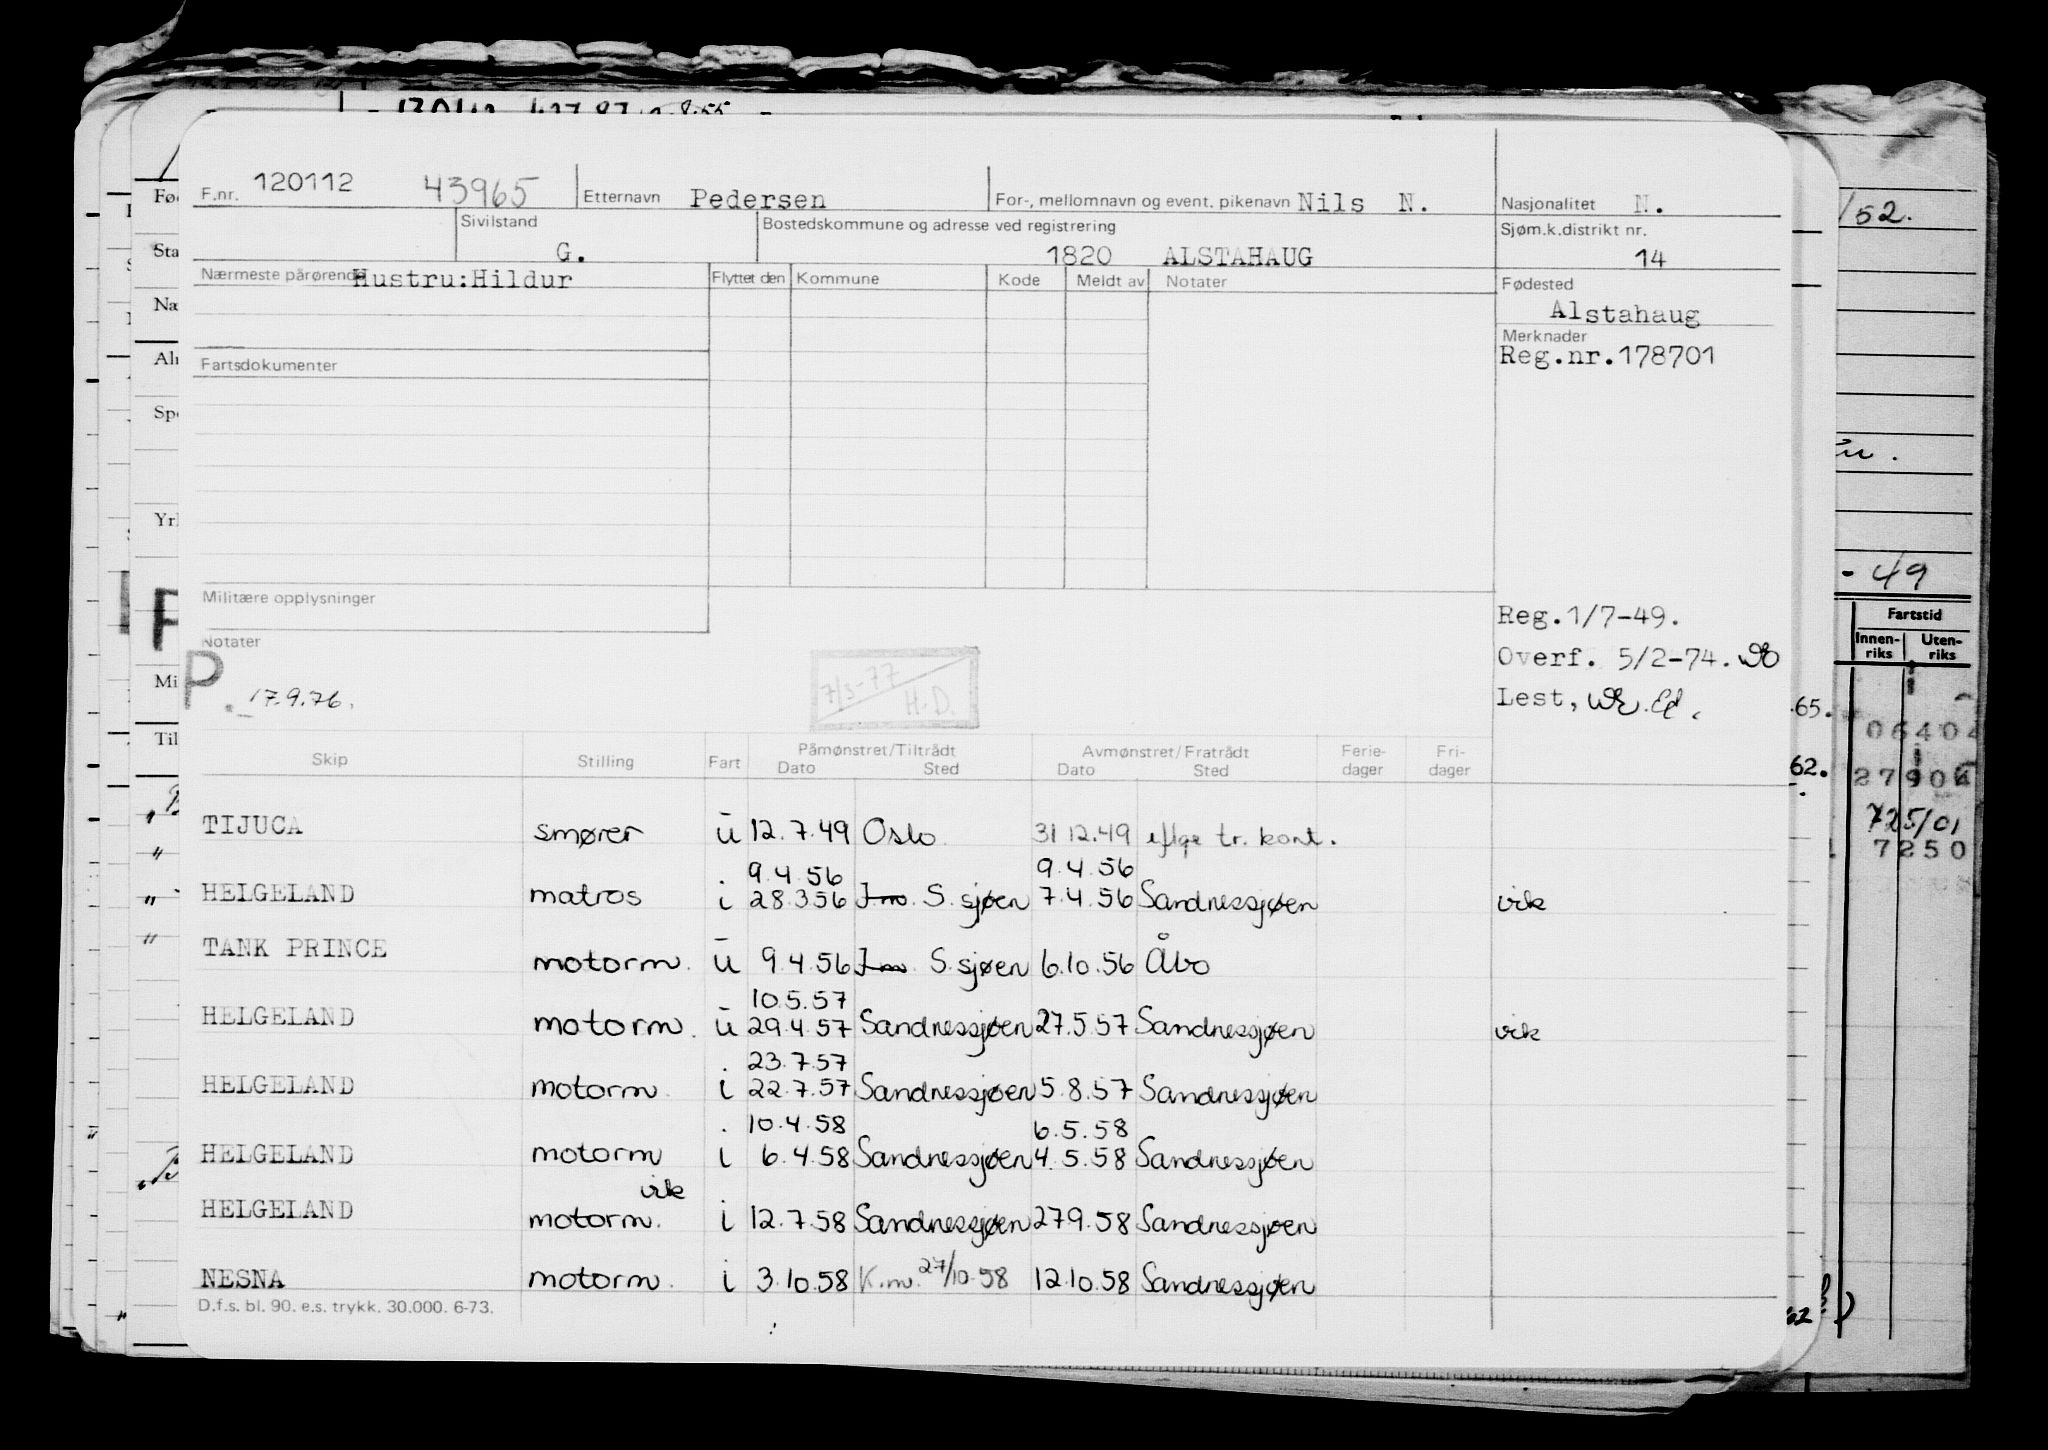 F.nr. 120112 43965 Etternavn Pedersen For-, mellomnavn og event. pikenavn Nils N. Nasjonalitet N.
Sivilstand G. Bostedskommune og adresse ved registrering 1820 ALSTAHAUG Sjøm.k.distrikt nr. 14
Nærmeste pårørende Hustru:Hildur Flyttet den Kommune Kode Meldt av Notater Fødested
Alstahaug
Merknader
Reg.nr.178701
Fartsdokumenter
Militære opplysninger
Notater
P. 17.9.76.
7/3-77
H.D.
Reg.1/7-49.
Overf. 5/2-74.
Lest,
Skip Stilling Fart Påmønstret/Tiltrådt Dato Sted Avmønstret/Fratrådt Dato Sted Ferie-dager Fri-dager
TIJUCA smører u 12.7.49 Oslo 31 12.49 iflge tr. kont.
9.4.56 9.4.56
HELGELAND matros i 28.3.56 S.sjøen 7.4.56 Sandnessjøen vik
TANK PRINCE motorm. u 9.4.56 S.sjøen 6.10.56 Åbo
10.5.57
HELGELAND motorm. u 29.4.57 Sandnessjøen 27.5.57 Sandnessjøen vik
23.7.57
HELGELAND motorm. i 22.7.57 Sandnessjøen 5.8.57 Sandnessjøen
10.4.58 6.5.58
HELGELAND motorm i 6.4.58 Sandnessjøen 4.5.58 Sandnessjøen
vik
HELGELAND motorm. i 12.7.58 Sandnessjøen 279.58 Sandnessjøen
NESNA motorm. i 3.10.58 K.m. 27/10-58 12.10.58 Sandnessjøen
D.f.s. bl. 90. e.s. trykk. 30.000. 6-73.
/52.
- 49
Fartstid
Innen-riks Uten-riks
65.
06404
62.
27904
725/01
7250
62